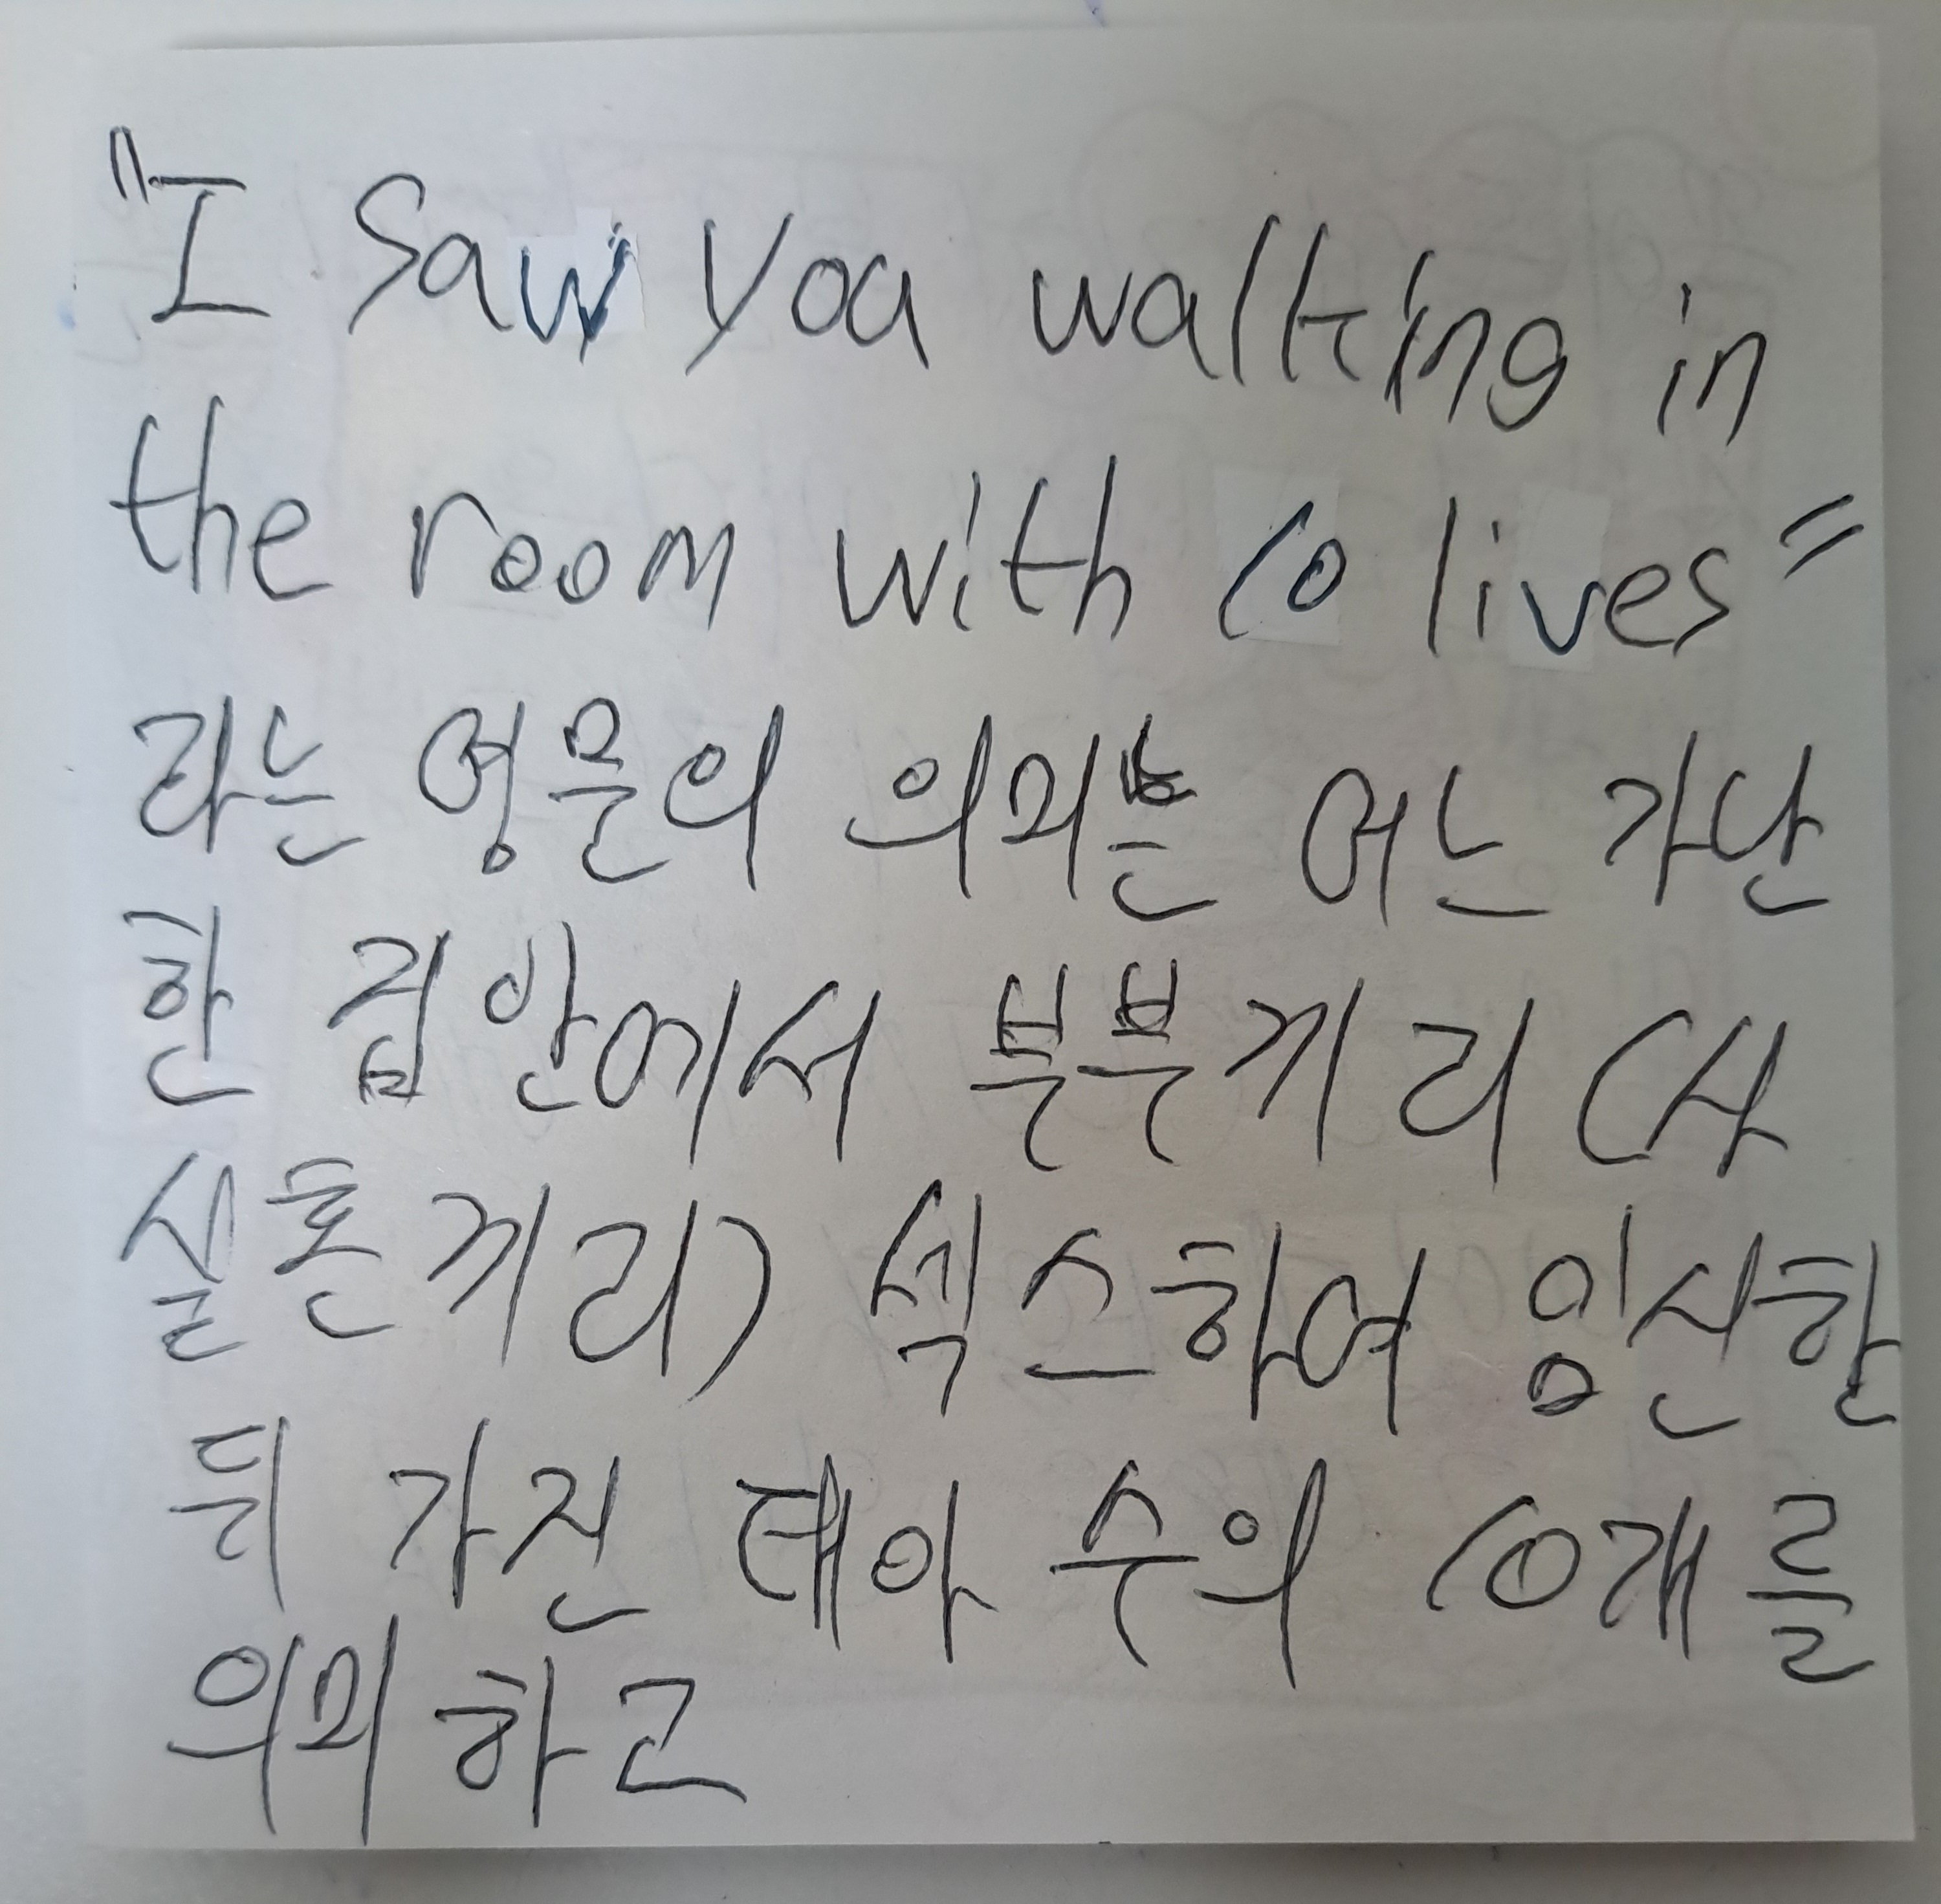 "I saw you walking in
the room with 10 lives"
라는 영문의 의미는 어느 가난
한 집안에서 부부끼리 (사
실혼끼리) 섹스하여 임신한
뒤 가진 태아 수의 10개를
의미하고